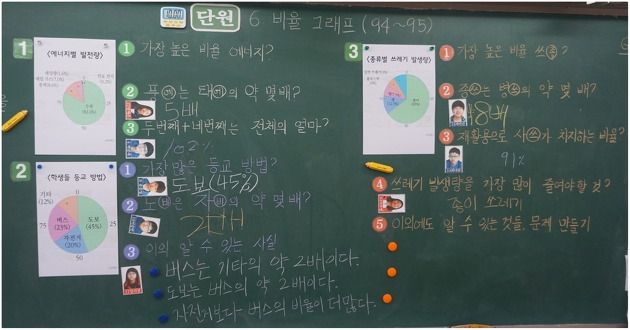 단원 6 비율 그래프 (94~95)
1
<에너지별 발전량>
1 가장 높은 비율 에너지?
2 풍에는 태에의 약 몇 배?
5배
3 두번째+네번째는 전체의 얼마?
2
<학생들 등교 방법>
기타
(12%)
버스
(23%)
도보
(45%)
자전거
(20%)
0
25
50
75
1 가장 많은 등교 방법?
도보(45%)
2 도비은 자비의 약 몇 배?
2배
3 이외 알 수 있는 사실
버스는 기타의 약 2배이다.
도보는 버스의 약 2배이다.
자전거보다 버스의 비율이 더 많다.
3
<종류별 쓰레기 발생량>
1 가장 높은 비율 쓰종?
2 종쓰는 병쓰의 약 몇 배?
8배
3 재활용으로 사쓰가 차지하는 비율?
91%
4 쓰레기 발생량을 가장 많이 줄여야 할 것?
종이 쓰레기
5 이외에도 알 수 있는 것들, 문제 만들기